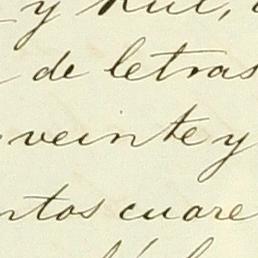 y
de letras
veinte y
ntos cuare